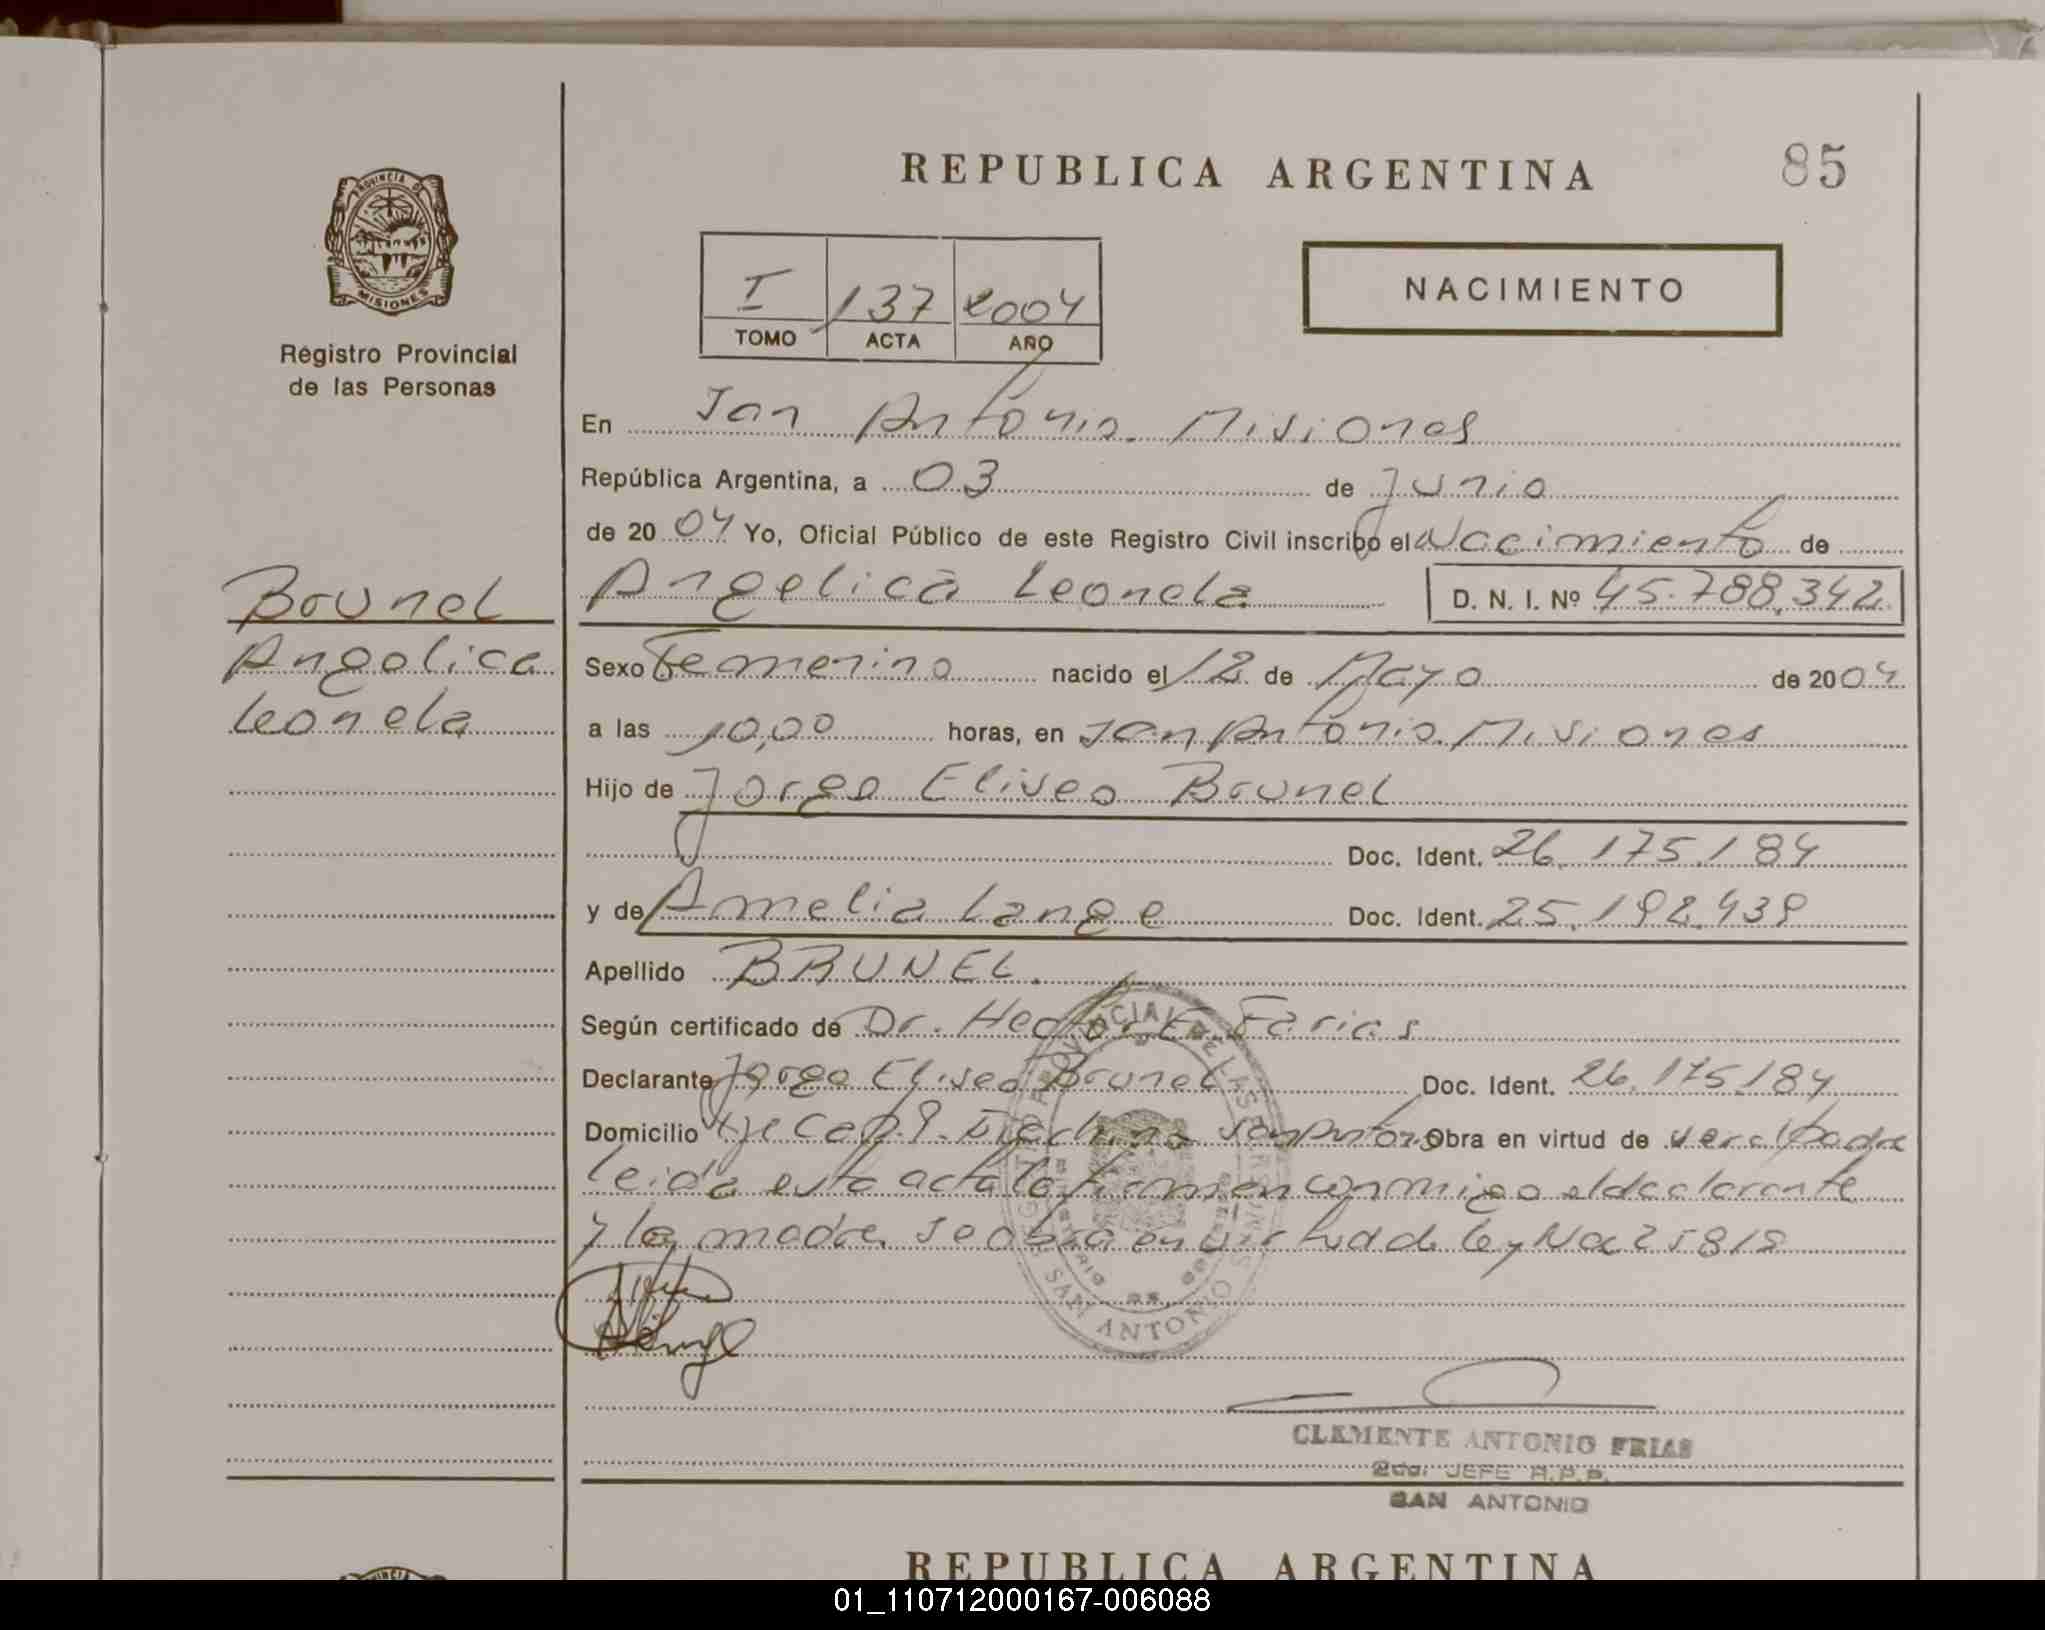 REPUBLICA ARGENTINA
85
PROVINCIA DE
MISIONES
Registro Provincial
de las Personas
I 137 2004
TOMO ACTA AÑO
NACIMIENTO
En San Antonio. Misiones
República Argentina, a 03 de Junio
de 20 04 Yo, Oficial Público de este Registro Civil inscribo el Nacimiento de
Brunel
Angelica
Leonela
Angelica Leonela D. N. I. Nº 45.788.342
Sexo Femenino nacido el 12 de Mayo de 20 04
a las 10,00 horas, en San Antonio. Misiones
Hijo de Jorge Eliseo Brunel
Doc. Ident. 26.175.184
y de Amelia Lange Doc. Ident. 25.192.439
Apellido BRUNEL.
Según certificado de Dr. Hector E. Farias
Declarante Jorge Eliseo Brunel Doc. Ident. 26.175184
Domicilio San Antonio Obra en virtud de ser el Padre
leida esta acta la firman conmigo el declarante
y la madre, se obra en virtud de ley No 25818
REGISTRO PROVINCIAL DE LAS PERSONAS
SAN ANTONIO
CLEMENTE ANTONIO FRIAS
2do. JEFE R.P.P.
SAN ANTONIO
REPUBLICA ARGENTINA
01_110712000167-006088